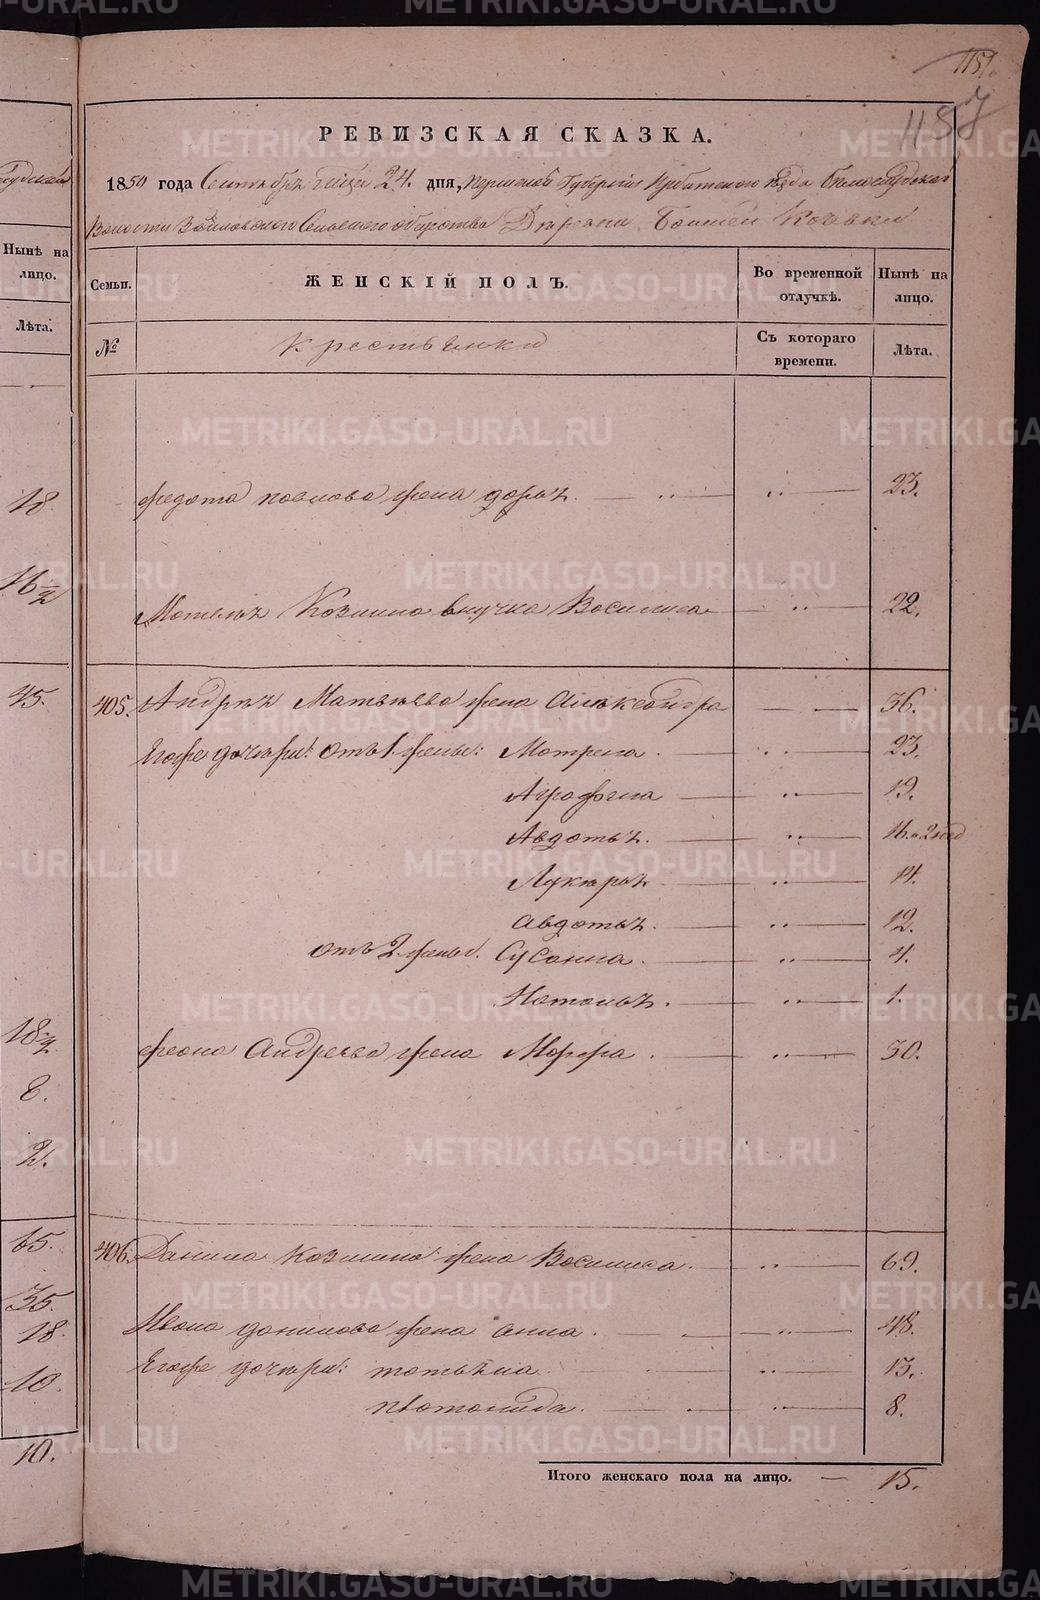 1151.
1157
РЕВИЗСКАЯ СКАЗКА.
1850 года Сентября мсца 24. дня, Пермской Губернiи Ирбитского Уѣзда Белослудской
Волости Сельского общества Деревни Большей Кочевки
Семьи. ЖЕНСКIЙ ПОЛЪ. Во временной отлучкѣ. Нынѣ на лицо.
№ Крестьянки Съ котораго времени. Лѣта.
Нынѣ на лицо.
Лѣта.
Федота Павлова жена Дарья. „ 23.
Козмина внучка Василиса „ 22.
405. Андрея Матвеева жена Александра — „ — 36.
Егоже дочери: отъ 1 жены: Матрена. „ 23.
Аграфена „ 19.
Авдотья. „
Лукерья „ 14.
Авдотья. „ 12.
отъ 2. жены. Сусанна. „ 4.
Наталья. „ 1.
Андреева жена Марфа. „ 30.
406. Данила Козмина жена Василиса. „ 69.
Ивана Данилова жена Анна. „ 48.
Егоже дочери: Татьяна. „ 13.
„ 8.
Итого женскаго пола на лицо. — 15.
18.
16½
45.
8.
2.
65.
35.
18.
10.
10.
METRIKI.GASO-URAL.RU